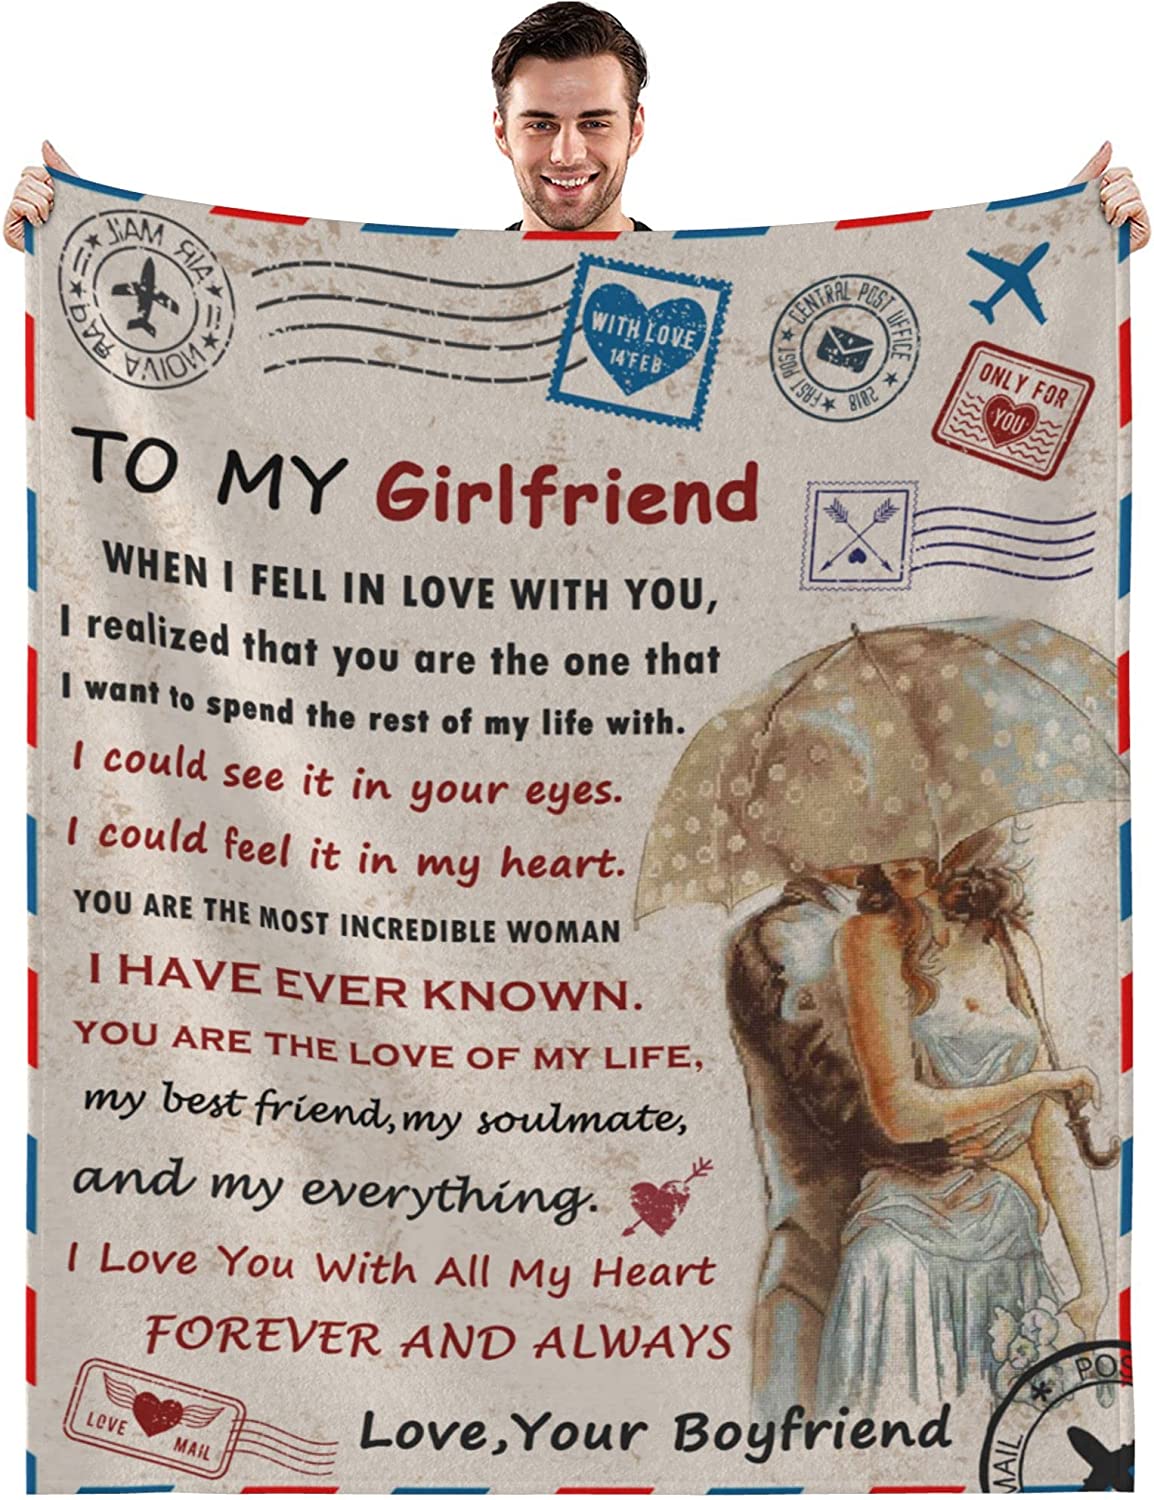 AIR MAIL
PAR AVION
WITH LOVE
14 FEB
CENTRAL POST OFFICE
FAST POST
2018
ONLY FOR
YOU
TO MY Girlfriend
WHEN I FELL IN LOVE WITH YOU,
I realized that you are the one that
I want to spend the rest of my life with.
I could see it in your eyes.
I could feel it in my heart.
YOU ARE THE MOST INCREDIBLE WOMAN
I HAVE EVER KNOWN.
YOU ARE THE LOVE OF MY LIFE,
my best friend, my soulmate,
and my everything.
I Love You With All My Heart
FOREVER AND ALWAYS
LOVE
MAIL
Love, Your Boyfriend
POS
MAIL